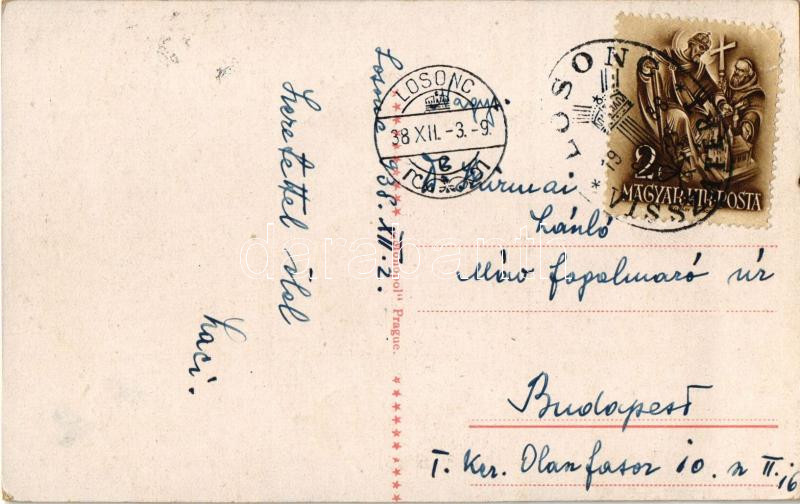 Losonc 938. XII. 2.
Szeretettel ölel
Laci.
LOSONC
38 XII. -3. -9.
LOSONC
VISSZATÉRT
19
2
MAGYAR KIR. POSTA
Nagys.
Kürmai
László
Máv fogalmazó úr
Budapest
I. Ker. Olasz fasor 10. II. 16
"Monopol" Prague.
darabanth